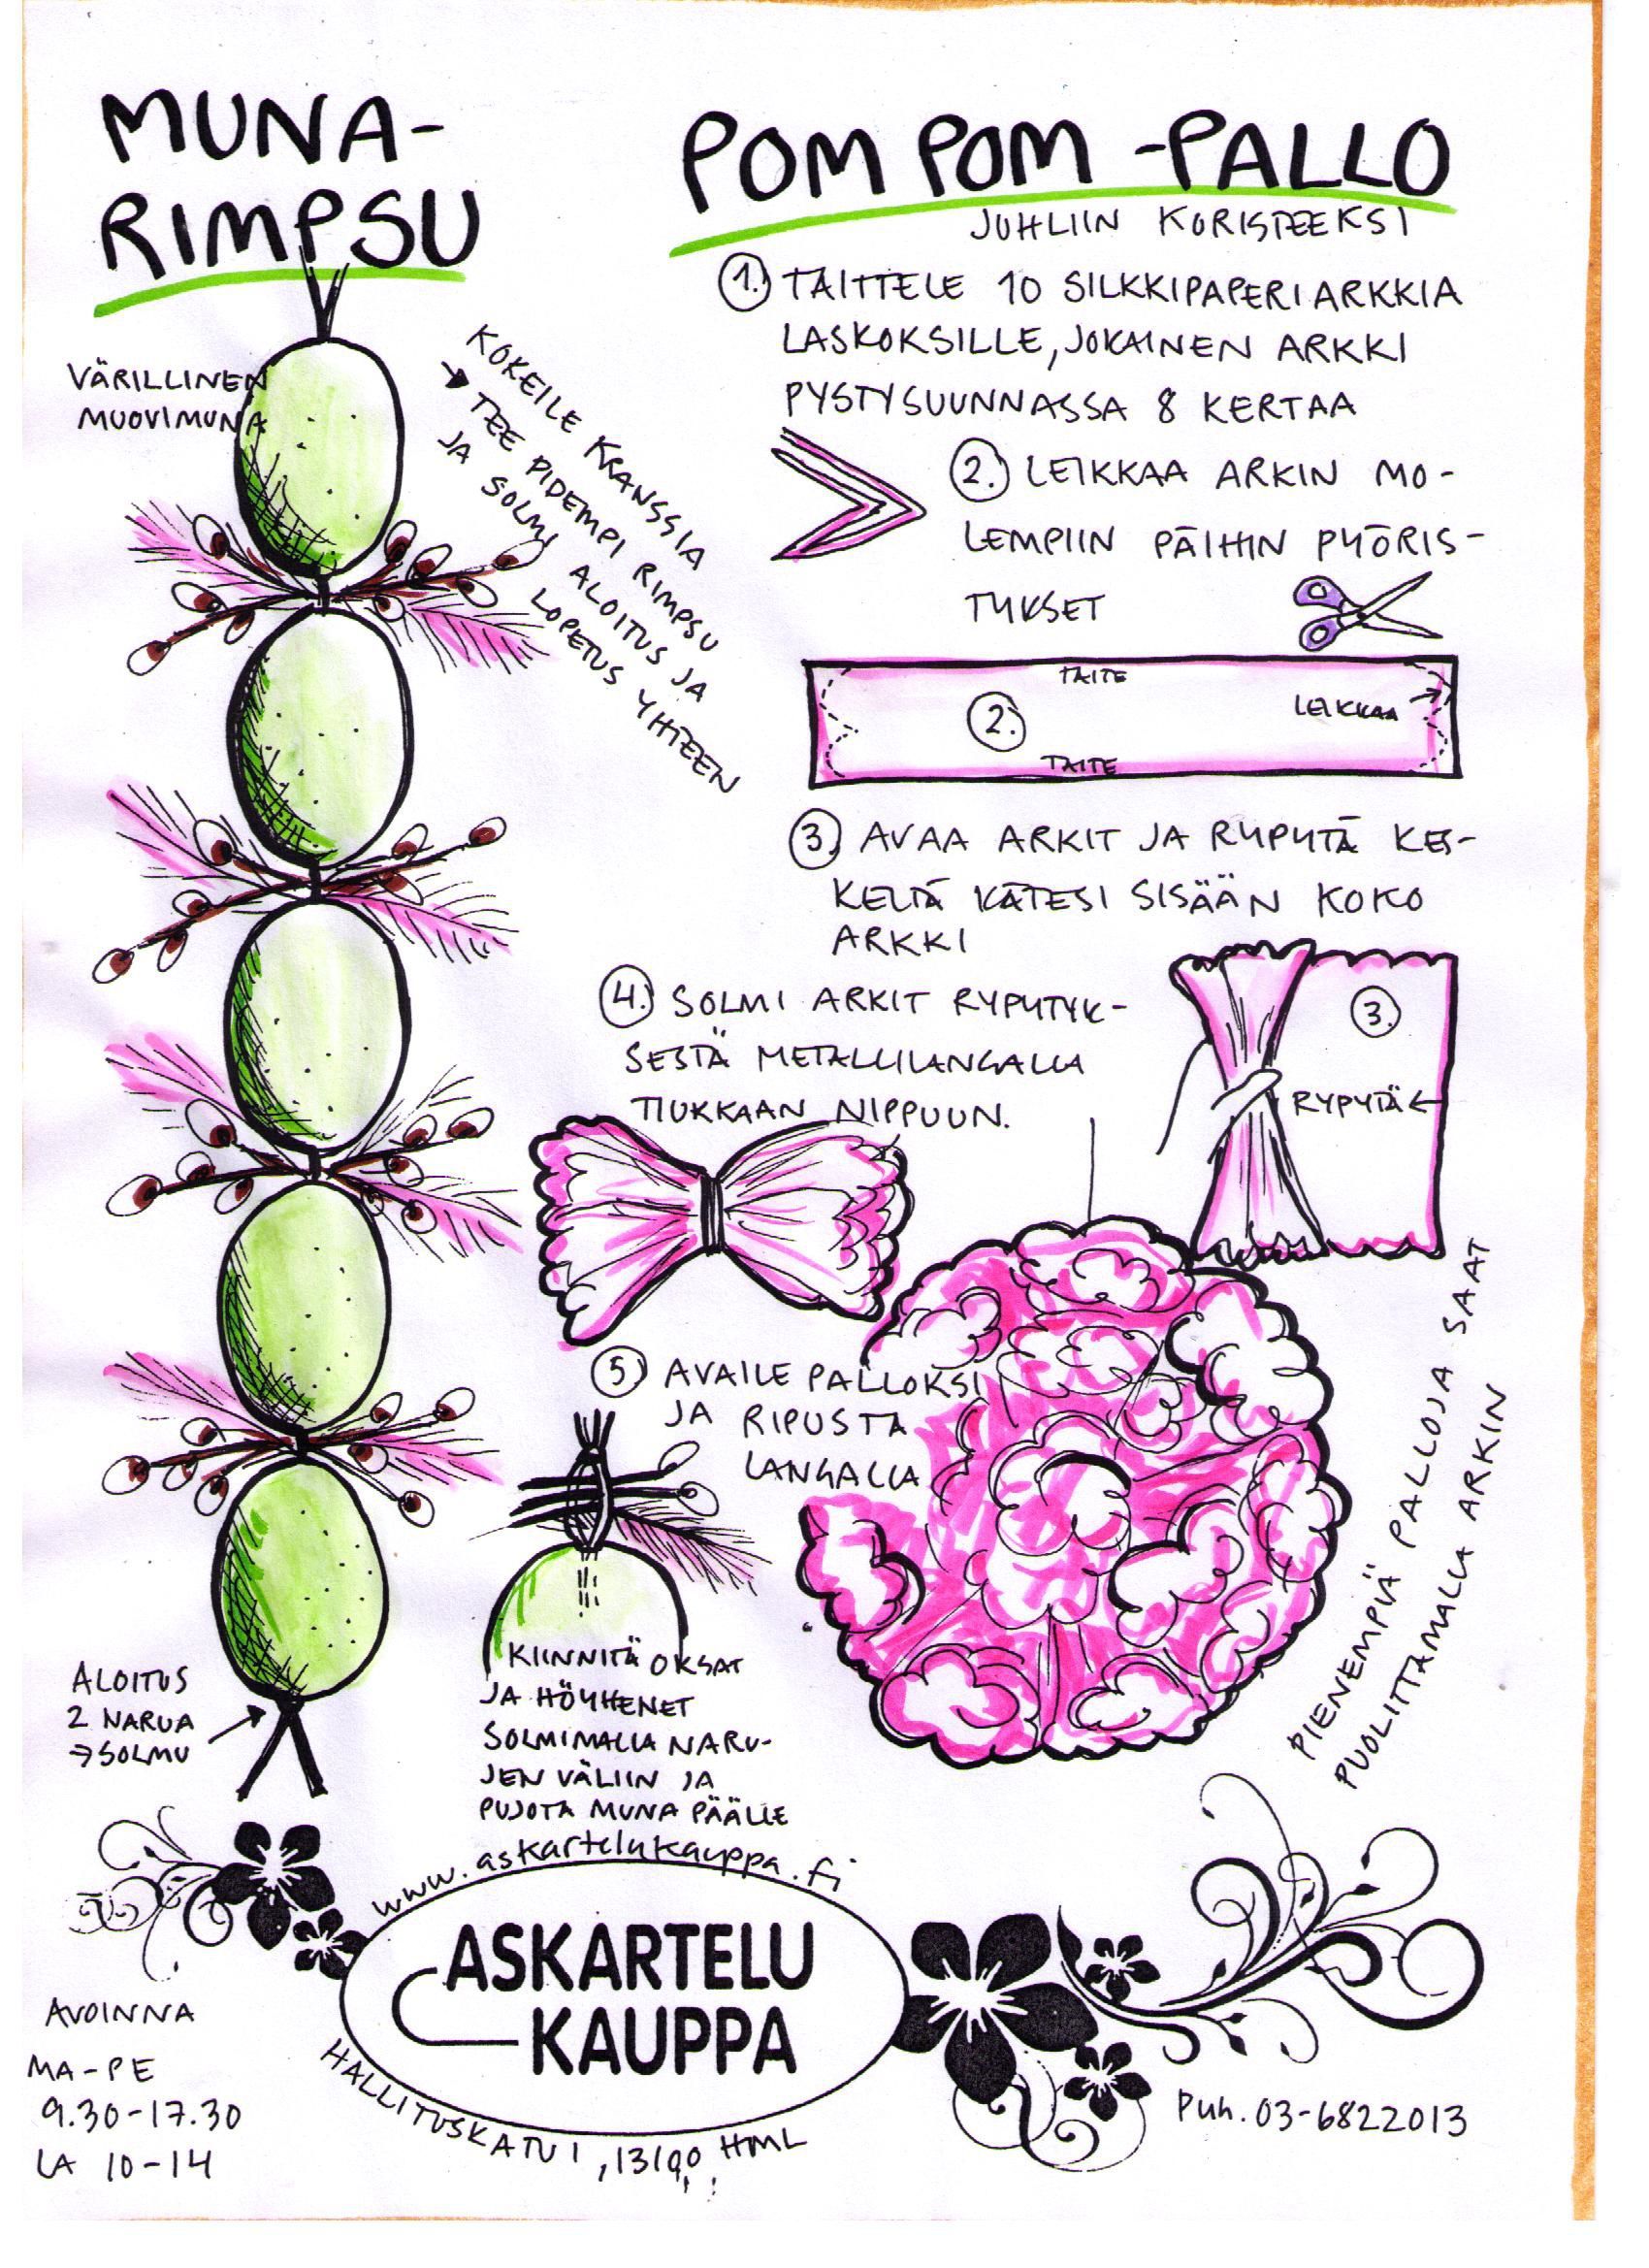 MUNA-
RIMPSU
VÄRILLINEN
MUOVIMUNA
KOKEILE KRANSSIA
→ TEE PIDEMPI RIMPSU
JA SOLMI ALOITUS JA
LOPETUS YHTEEN
ALOITUS
2 NARUA
→ SOLMU
KIINNITÄ OKSAT
JA HÖYHENET
SOLMIMALLA NARU-
JEN VÄLIIN JA
PUJOTA MUNA PÄÄLLE
POM POM -PALLO
JUHLIIN KORISTEEKSI
1. TAITTELE 10 SILKKIPAPERIARKKIA
LASKOKSILLE, JOKAINEN ARKKI
PYSTYSUUNNASSA 8 KERTAA
2. LEIKKAA ARKIN MO-
LEMPIIN PÄIHIN PYÖRIS-
TYKSET
TAITE
LEIKKAA
2.
TAITE
3. AVAA ARKIT JA RYPYTÄ KES-
KELTÄ KÄTESI SISÄÄN KOKO
ARKKI
3.
RYPYTÄ
4. SOLMI ARKIT RYPYTYK-
SESTÄ METALLILANGALLA
TIUKKAAN NIPPUUN.
5 AVAILE PALLOKSI
JA RIPUSTA
LANGALLA
PIENEMPIÄ PALLOJA SAAT
PUOLITTAMALLA ARKIN
www.askartelukauppa.fi
ASKARTELU
KAUPPA
HALLITUSKATU 1, 13100 HML
AVOINNA
MA-PE
9.30-17.30
LA 10-14
Puh. 03-6822013